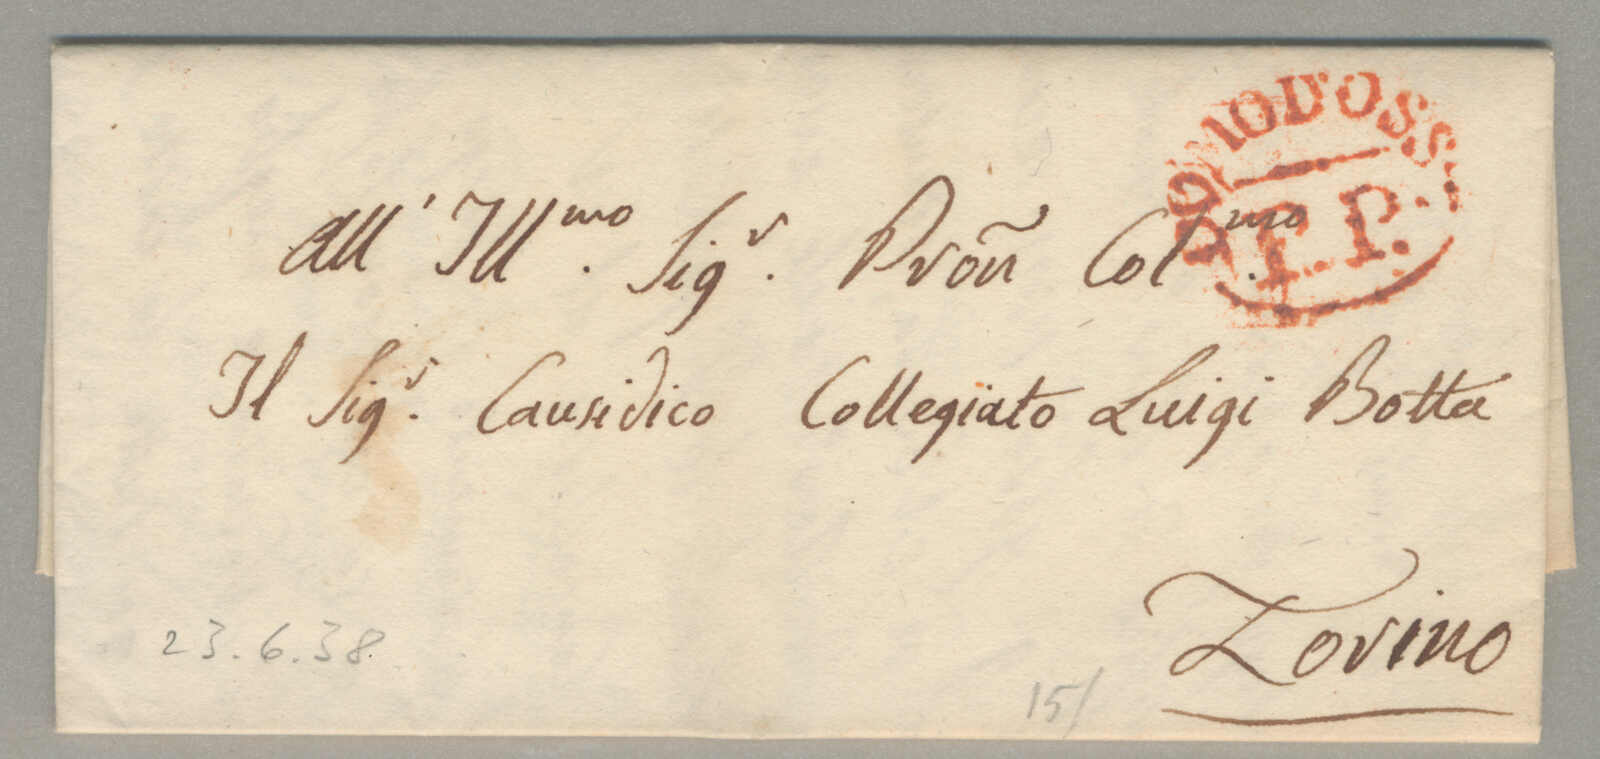 DOMOD'OSS.
P.P.
All' Ill.mo Sig.r Pron̄ Col.mo
Il Sig.r Causidico Collegiato Luigi Botta
Torino
23.6.38.
15/